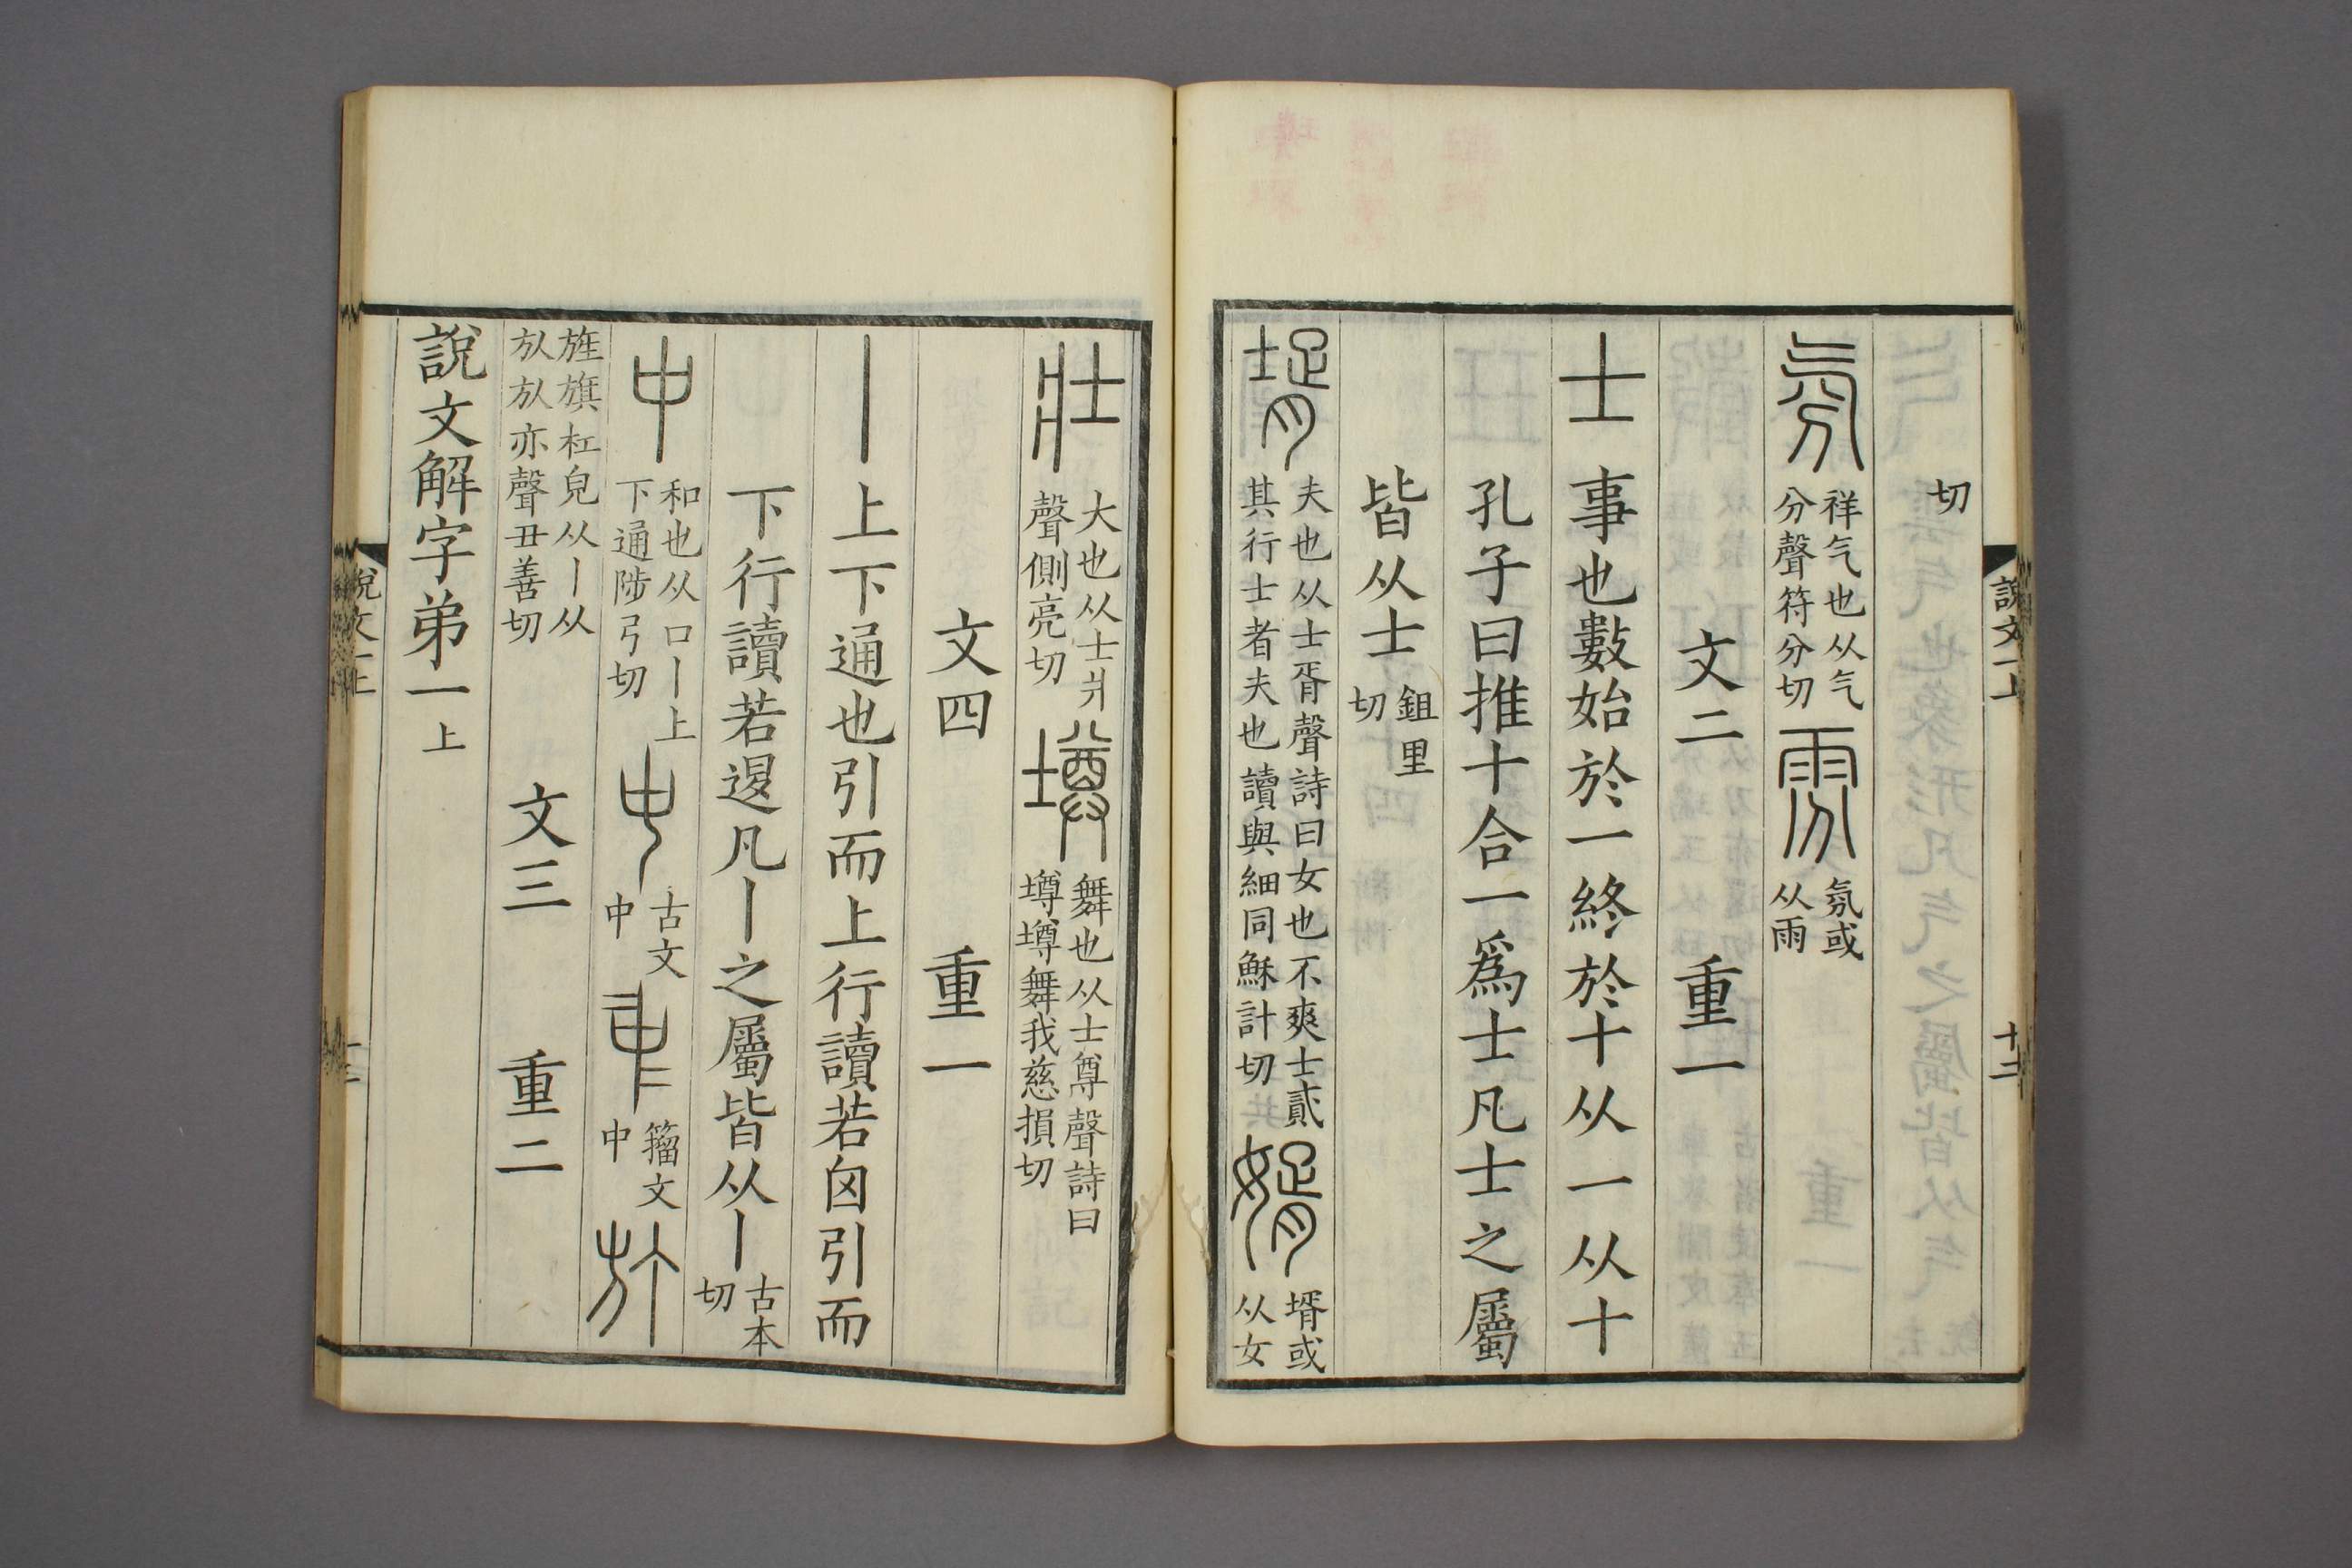 切
氛 祥气也从气分聲符分切 雰 氛或从雨
文二 重一
士 事也數始於一終於十从一从十
孔子曰推十合一爲士凡士之屬
皆从士 鉏里切
壻 夫也从士胥聲詩曰女也不爽士貳其行士者夫也讀與細同穌計切 婿 壻或从女
說文一上 十三
壯 大也从士爿聲側亮切 壿 舞也从士尊聲詩曰壿壿舞我慈損切
文四 重一
丨 上下通也引而上行讀若囟引而
下行讀若𨑔凡丨之屬皆从丨 古本切
中 和也从口丨上下通陟弓切 𠁧 古文中 𠁩 籒文中 㫃
旌旗杠皃从丨从㫃㫃亦聲丑善切 文三 重二
說文解字弟一上
說文一上